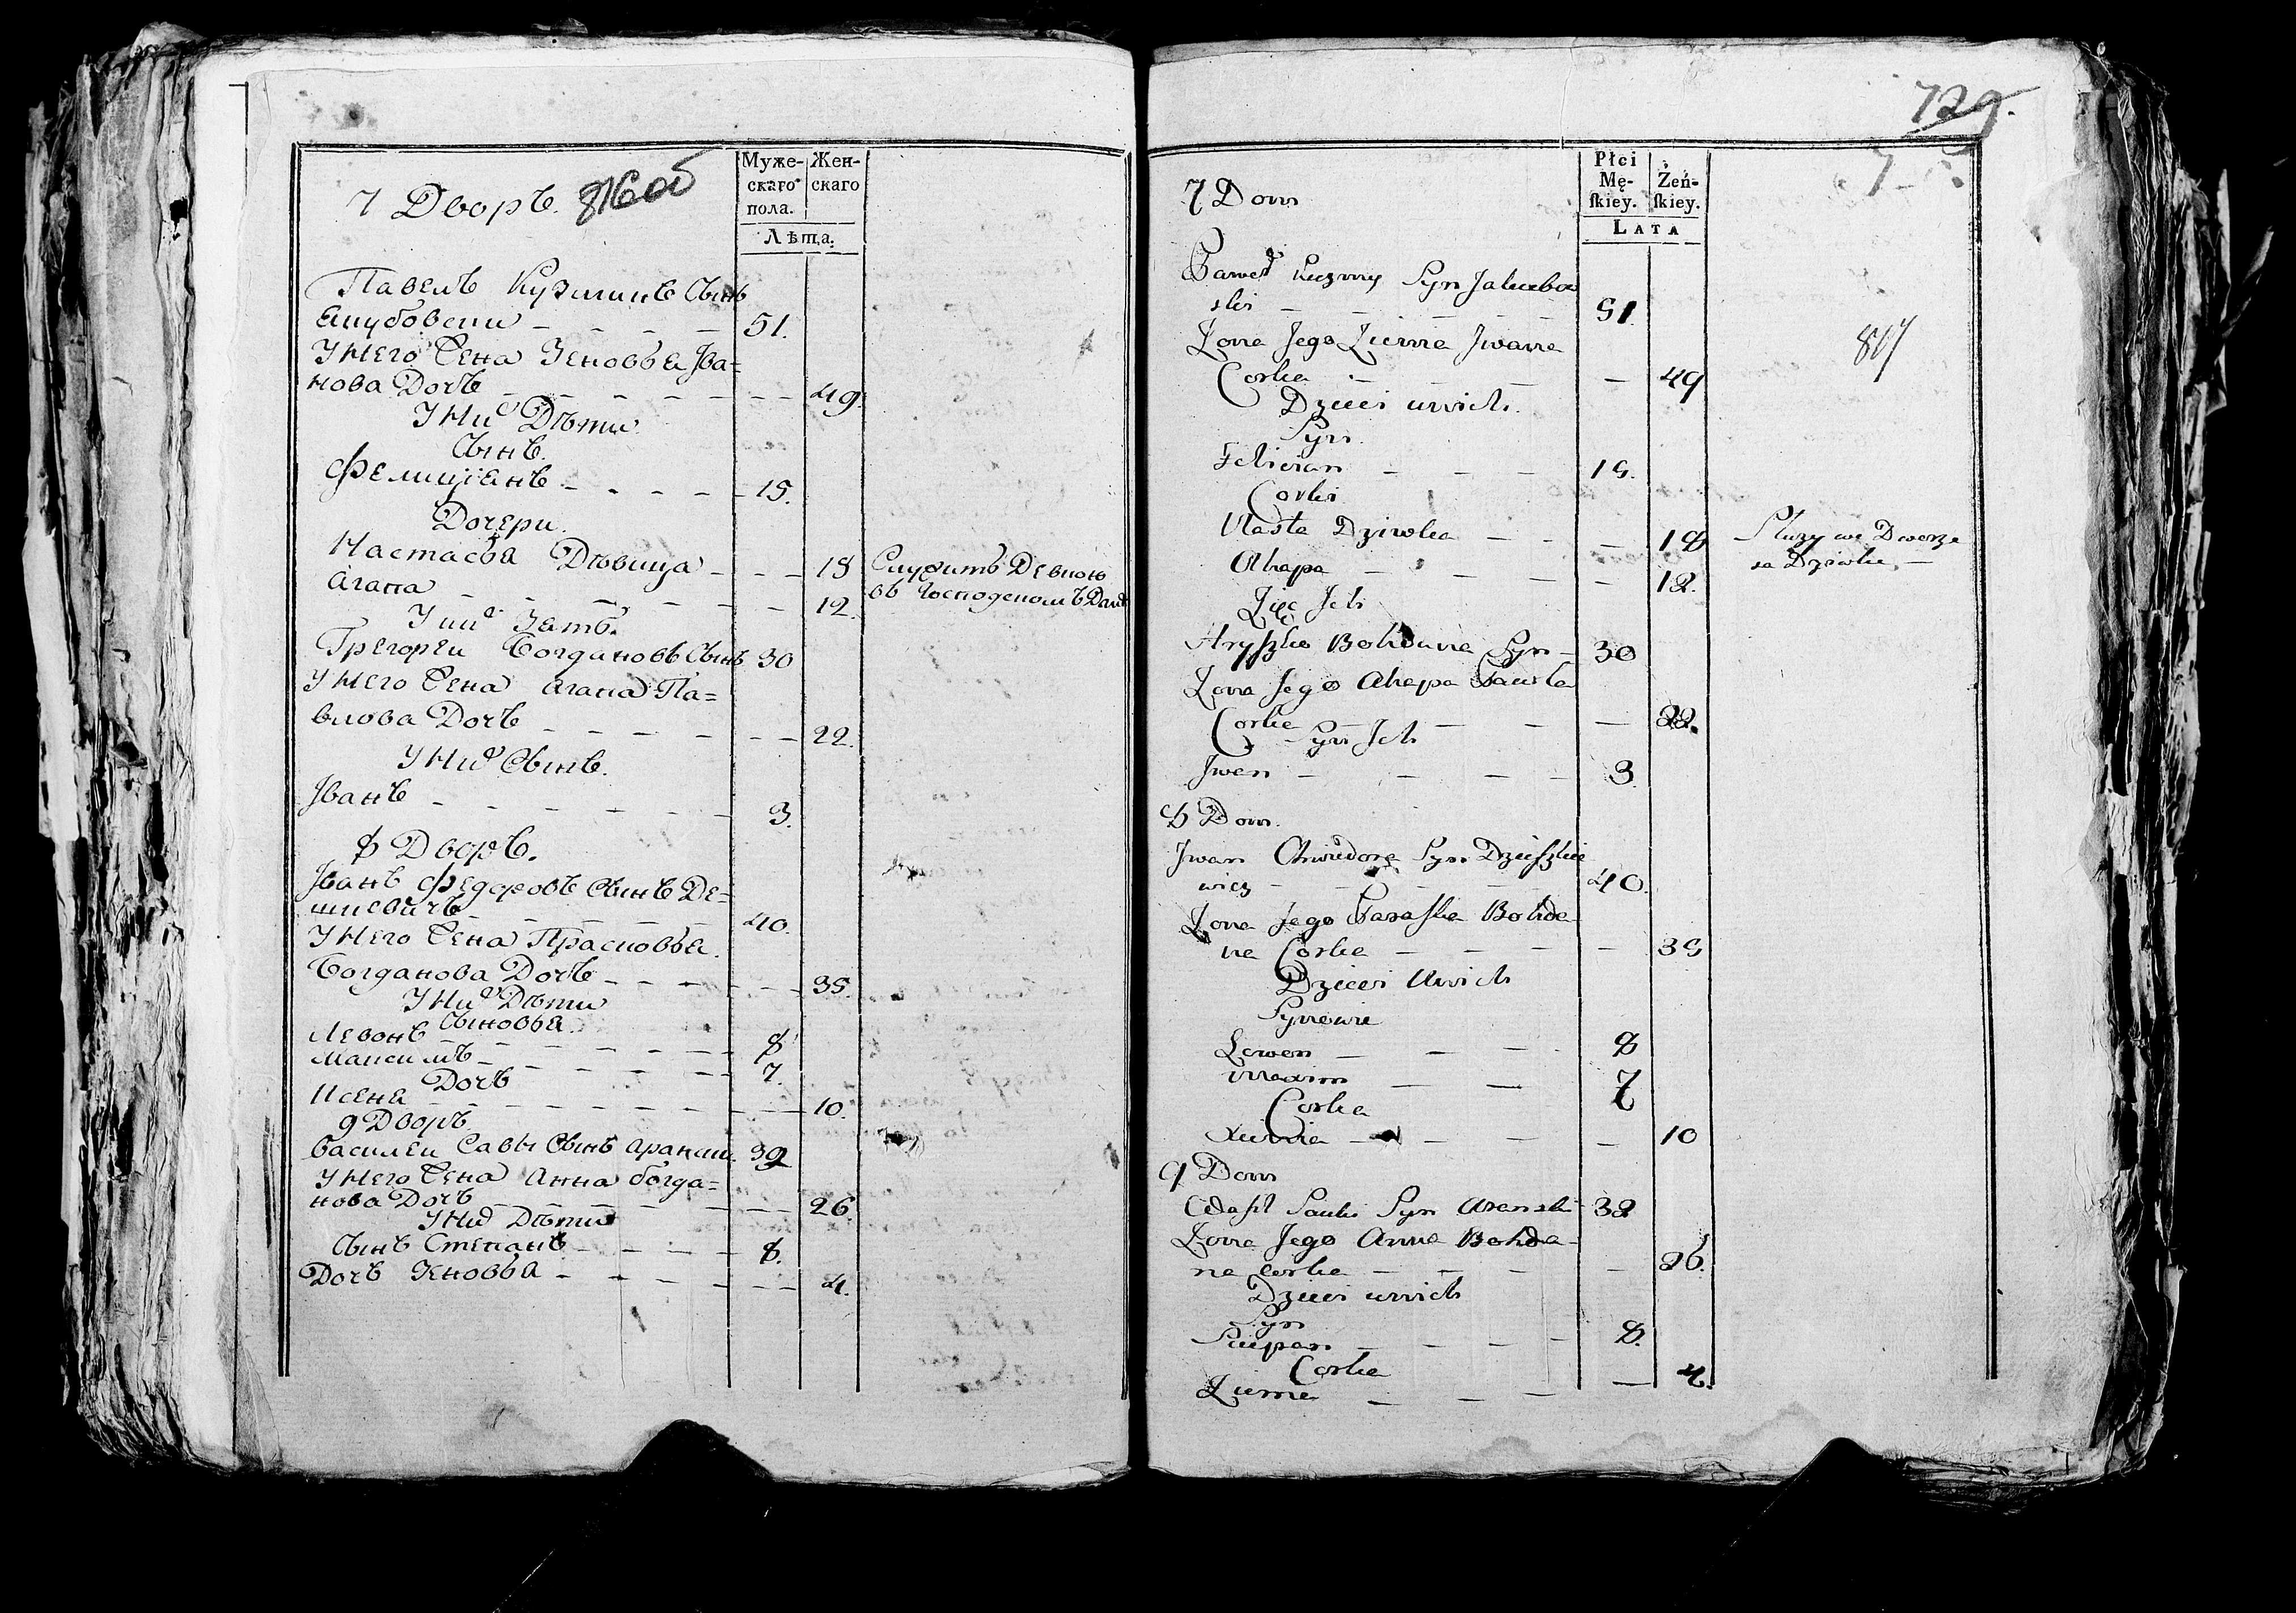 7 Дворъ. 816 об
Муже-
скаго
пола.
Жен-
скаго
Лѣта.
Павелъ Кузминъ Сынъ
Якубовски 51.
У Него Жена Зеновья Ива=
нова Дочь 49.
У Них Дѣти
Сынъ.
Фелиціянъ 15.
Дочери.
Настасья Дѣвица 18 Служитъ Девкою
Агапа 12. въ Господскомъ
У них Зять.
Грегореи Богдановъ Сынъ 30
У Него Жена Агапа Па=
влова Дочь 22.
У Них Сынъ.
Іванъ 3.
8 Дворъ.
Іванъ Федоровъ Сынъ Де=
шкевичъ 40.
У Него Жена Прасковья
Богданова Дочь 35.
У Них Дѣти
Сыновья.
Левонъ 8
Максимъ 7.
Дочь
Ксеня 10.
9 Дворъ
Василеи Савы Сынъ 32
У Него Жена Анна богда=
нова Дочь 26
У Них Дѣти
Сынъ Степанъ 8.
Дочь Зеновья 4.
729.
7 Dom
Płci
Mę-
ſkiey.
Żeń-
ſkiey.
LATA
Paweł Kuzmy Syn Jakubow
ski 51.
Zona Jego Zienia Iwana
Corka 49
817
Dzieci unich.
Syn.
Felician 15.
Corki
Nasta Dziwka 18 Służy we Dworze
za Dziwkę
Ahapa 12.
Zięć Ich
Hryszko Bohdana Syn 30
Zona Jego Ahapa Pawła
Corka 22.
Syn Ich
Iwan 3
8 Dom.
Iwan Chwiedora Syn Dzieszkie
wicz 40
Zona Jego Paraska Bohda
na Corka 35
Dzieci Unich
Synowie
Lewon 8
Maxim 7
Corka
Xienia 10
9 Dom
Wasil Sawki Syn 32
Zona Jego Anna Bohda
na Corka 26.
Dzieci unich
Syn
Sciepan 8.
Corka
Zienia 4.